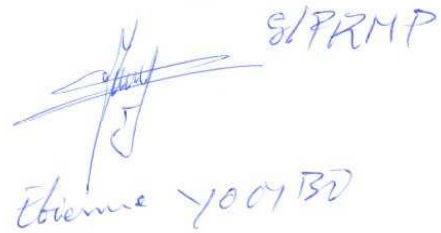 S/PRMP
Etienne YOMBO